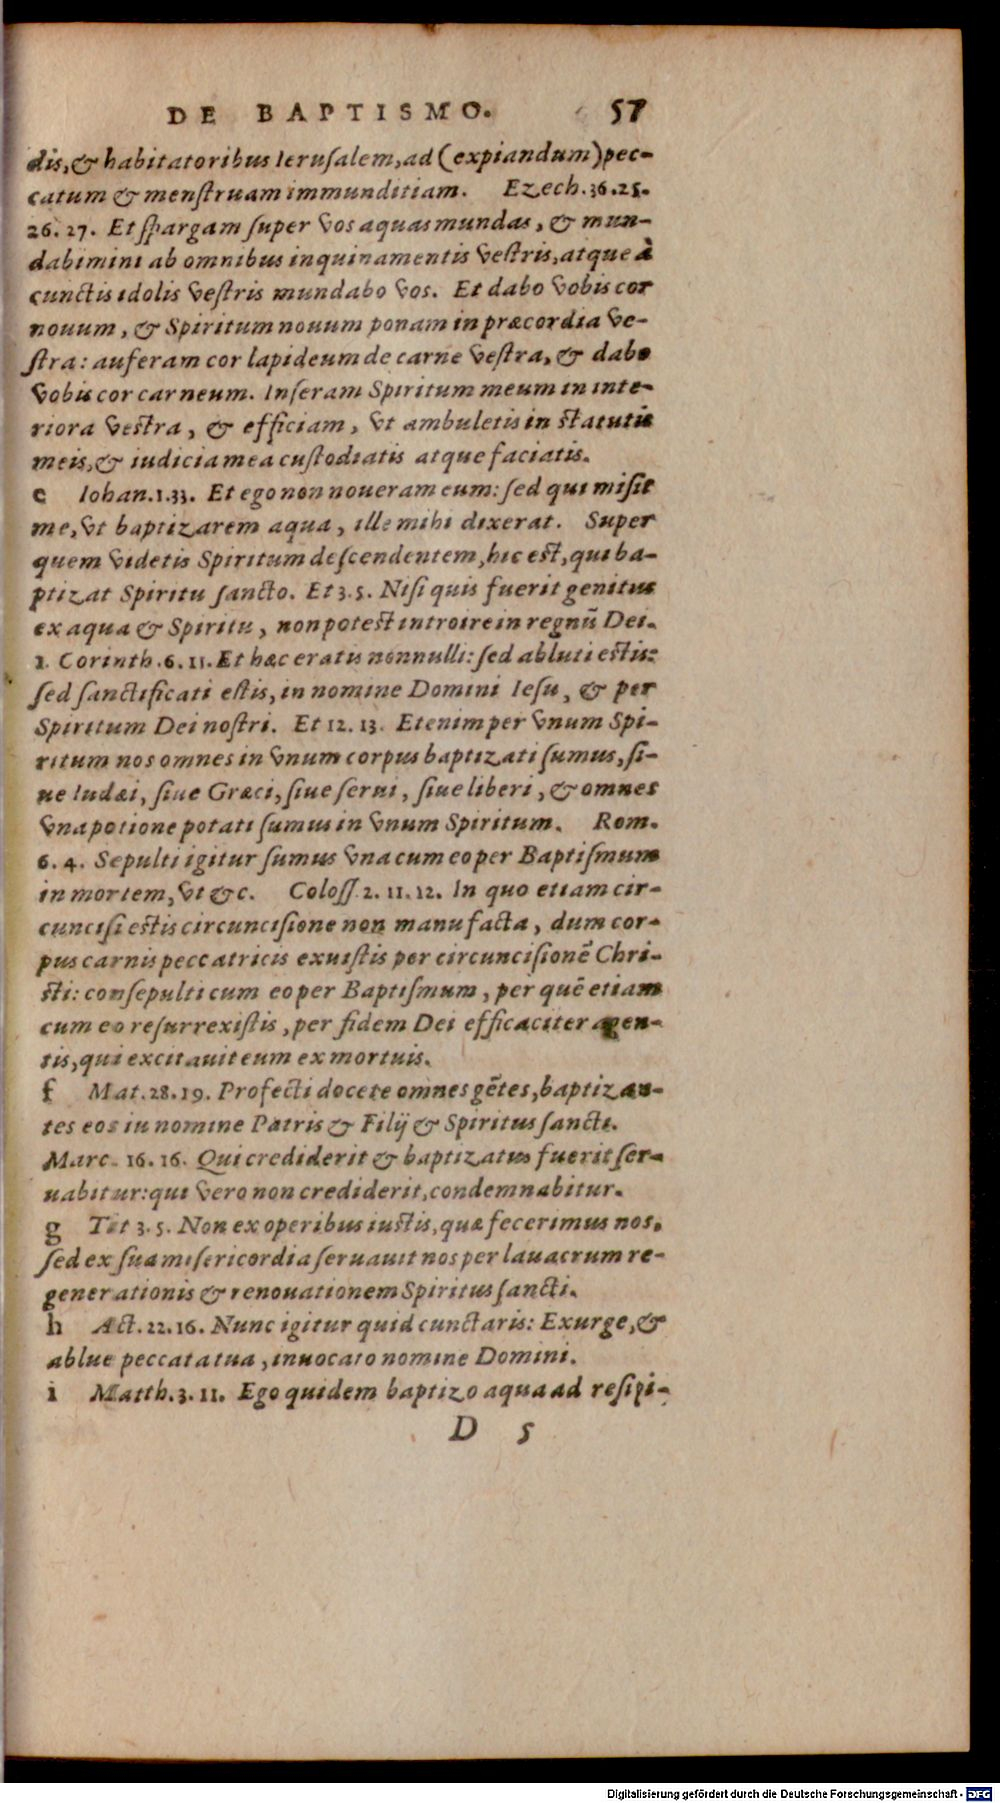 DE BAPTISMO. 57
dis, & habitatoribus Ieruſalem, ad (expiandum) pec-
catum & menſtruam immunditiam. Ezech. 36. 25.
26. 27. Et ſpargam ſuper vos aquas mundas, & mun-
dabimini ab omnibus inquinamentis veſtris, atque à
cunctis idolis veſtris mundabo vos. Et dabo vobis cor
nouum, & Spiritum nouum ponam in præcordia ve-
ſtra: auferam cor lapideum de carne veſtra, & dabo
vobis cor carneum. Inſeram Spiritum meum in inte-
riora veſtra, & efficiam, vt ambuletis in ſtatutis
meis, & iudicia mea cuſtodiatis atque faciatis.
e Iohan. 1. 33. Et ego non noueram eum: ſed qui miſit
me, vt baptizarem aqua, ille mihi dixerat. Super
quem videtis Spiritum deſcendentem, hic eſt, qui ba-
ptizat Spiritu ſancto. Et 3. 5. Niſi quis fuerit genitus
ex aqua & Spiritu, non poteſt introire in regnũ Dei.
1. Corinth. 6. 11. Et hæc eratis nonnulli: ſed abluti eſtis:
ſed ſanctificati eſtis, in nomine Domini Ieſu, & per
Spiritum Dei noſtri. Et 12. 13. Etenim per vnum Spi-
ritum nos omnes in vnum corpus baptizati ſumus, ſi-
ue Iudæi, ſiue Græci, ſiue ſerui, ſiue liberi, & omnes
vna potione potati ſumus in vnum Spiritum. Rom.
6. 4. Sepulti igitur ſumus vna cum eo per Baptiſmum
in mortem, vt &c. Coloſſ. 2. 11. 12. In quo etiam cir-
cunciſi eſtis circunciſione non manu facta, dum cor-
pus carnis peccatricis exuiſtis per circunciſionẽ Chri-
ſti: conſepulti cum eo per Baptiſmum, per quẽ etiam
cum eo reſurrexiſtis, per fidem Dei efficaciter agen-
tis, qui excitauit eum ex mortuis.
f Mat. 28. 19. Profecti docete omnes gẽtes, baptizan-
tes eos in nomine Patris & Filij & Spiritus ſancti.
Marc. 16. 16. Qui crediderit & baptizatus fuerit ſer-
uabitur: qui vero non crediderit, condemnabitur.
g Tit 3. 5. Non ex operibus iuſtis, quæ fecerimus nos,
ſed ex ſua miſericordia ſeruauit nos per lauacrum re-
generationis & renouationem Spiritus ſancti.
h Act. 22. 16. Nunc igitur quid cunctaris: Exurge, &
ablue peccata tua, inuocato nomine Domini.
i Matth. 3. 11. Ego quidem baptizo aqua ad reſipi-
D 5
Digitalisierung gefördert durch die Deutsche Forschungsgemeinschaft - DFG